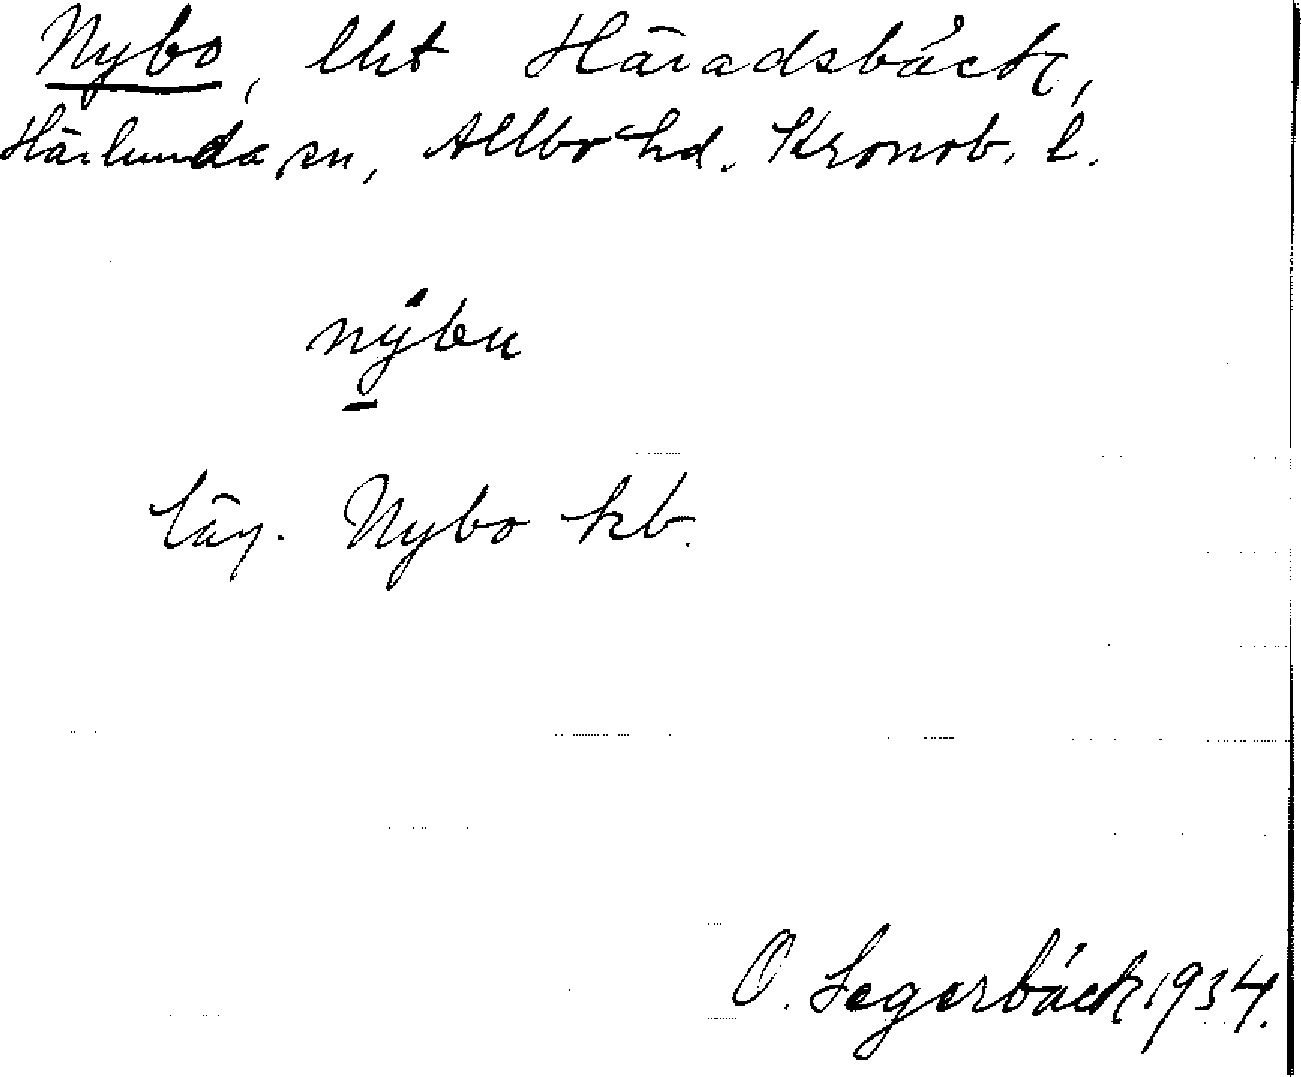 Nybo, lht Häradsbäck,
Härlunda sn, Allbo hd. Kronob. l.
nýbu
läg. Nybo kb.
O. Segerbäck 1934.